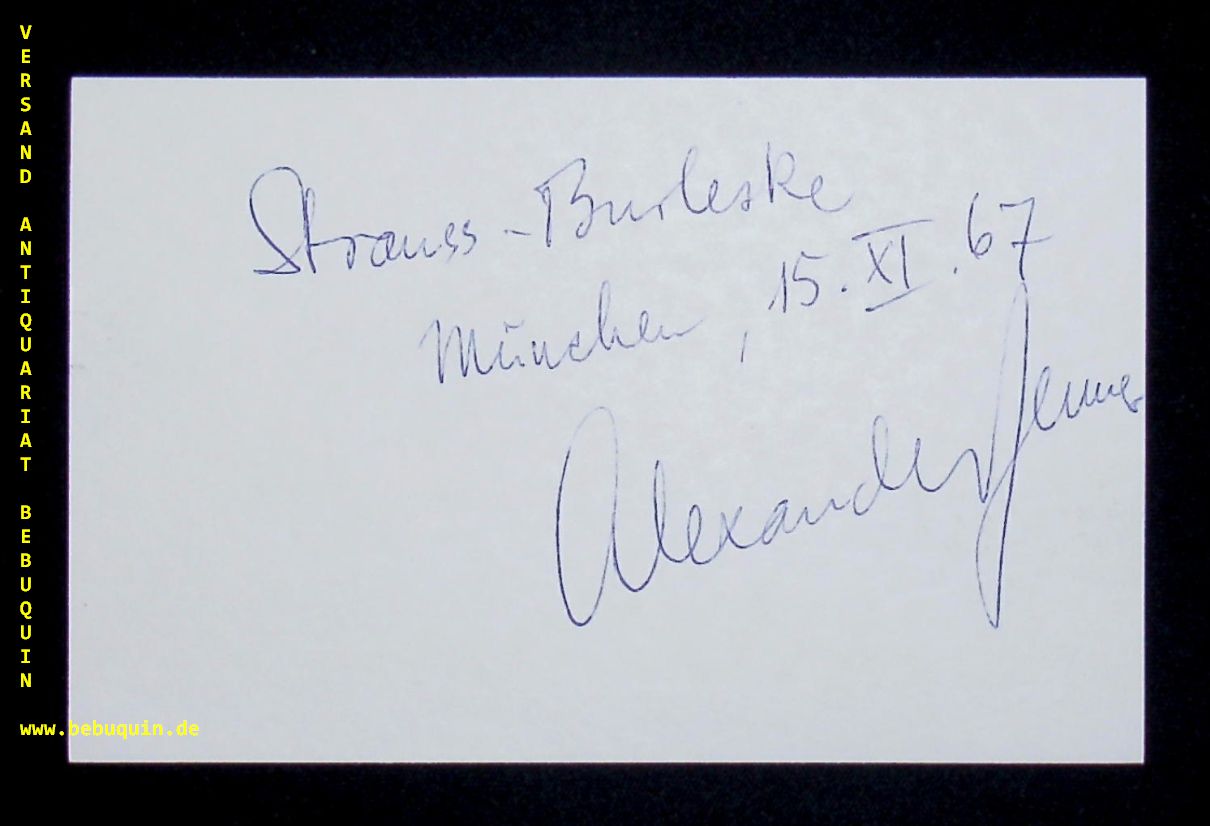 Strauss-Burleske
München, 15.XI.67
Alexander Jenner
VERSAND ANTIQUARIAT BEBUQUIN
www.bebuquin.de